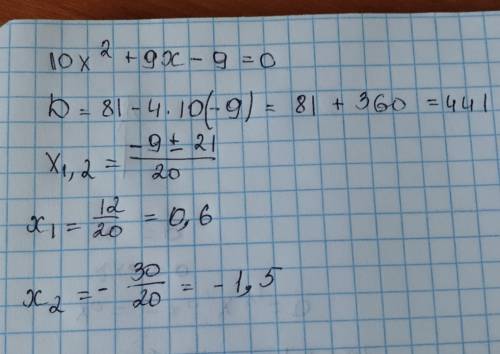 10x² + 9x - 9 = 0
D = 81 - 4 · 10(-9) = 81 + 360 = 441
x₁,₂ = (-9 ± 21)/20
x₁ = 12/20 = 0,6
x₂ = - 30/20 = -1,5